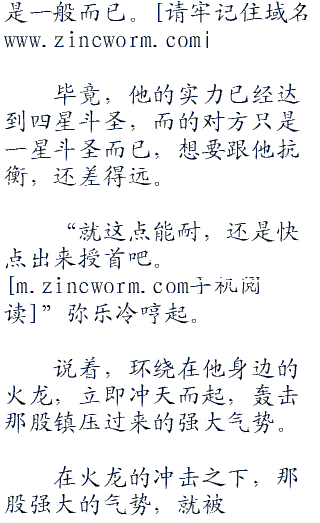 是一般而已。[请牢记住域名
www.zincworm.com|
毕竟，他的实力已经达
到四星斗圣，而的对方只是
一星斗圣而已，想要跟他抗
衡，还差得远。
“就这点能耐，还是快
点出来授首吧。
[m.zincworm.com手机阅
读]”弥乐冷哼起。
说着，环绕在他身边的
火龙，立即冲天而起，轰击
那股镇压过来的强大气势。
在火龙的冲击之下，那
股强大的气势，就被